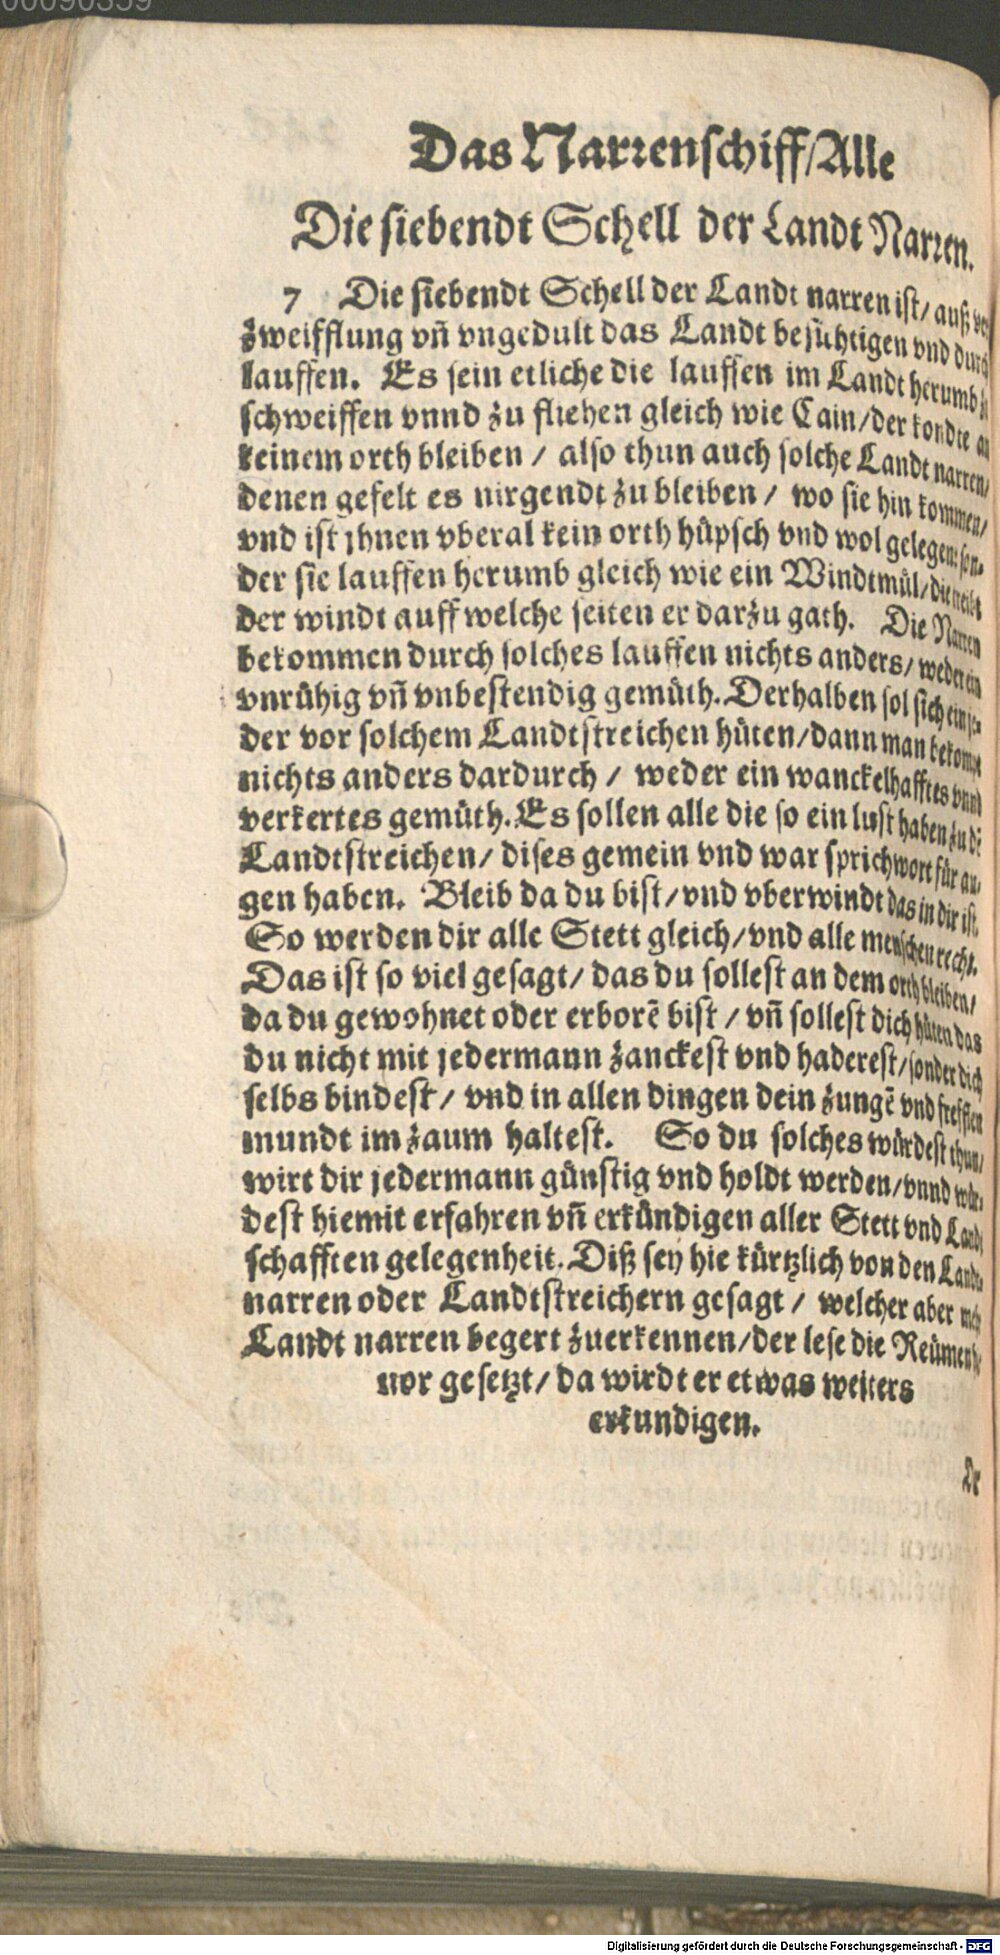 00090359
Das Narrenschiff/Alle
Die siebendt Schell der Landt Narren.
7 Die siebendt Schell der Landt narren ist/ auß ver
zweifflung vñ vngedult das Landt besichtigen vnd durch
lauffen. Es sein etliche die lauffen im Landt herumb zů
schweiffen vnnd zu fliehen gleich wie Cain/der kondte an
keinem orth bleiben / also thun auch solche Landt narren/
denen gefelt es nirgendt zu bleiben / wo sie hin kommen/
vnd ist jhnen vberal kein orth hüpsch vnd wol gelegen: son-
der sie lauffen herumb gleich wie ein Windtmül/ die treibt
der windt auff welche seiten er darzu gath. Die Narren
bekommen durch solches lauffen nichts anders/ weder ein
vnrühig vñ vnbestendig gemüth. Derhalben sol sich ein je-
der vor solchem Landtstreichen hüten/dann man bekompt
nichts anders dardurch / weder ein wanckelhafftes vnnd
verkertes gemüth. Es sollen alle die so ein lust haben zu dē
Landtstreichen/ dises gemein vnd war sprichwort für au-
gen haben. Bleib da du bist/vnd vberwindt das in dir ist.
So werden dir alle Stett gleich/vnd alle menschen recht.
Das ist so viel gesagt/ das du sollest an dem orth bleiben/
da du gewohnet oder erborē bist / vñ sollest dich hüten das
du nicht mit jedermann zanckest vnd haderest/sonder dich
selbs bindest/ vnd in allen dingen dein zungē vnd freffien
mundt im zaum haltest. So du solches würdest thun/
wirt dir jedermann günstig vnd holdt werden/vnnd wür-
dest hiemit erfahren vñ erkündigen aller Stett vnd Landt
schafften gelegenheit. Diß sey hie kürtzlich von den Landt
narren oder Landtstreichern gesagt / welcher aber mehr
Landt narren begert zuerkennen/der lese die Reümen hie
vor gesetzt/ da wirdt er etwas weiters
erkundigen.
De
Digitalisierung gefördert durch die Deutsche Forschungsgemeinschaft - DFG